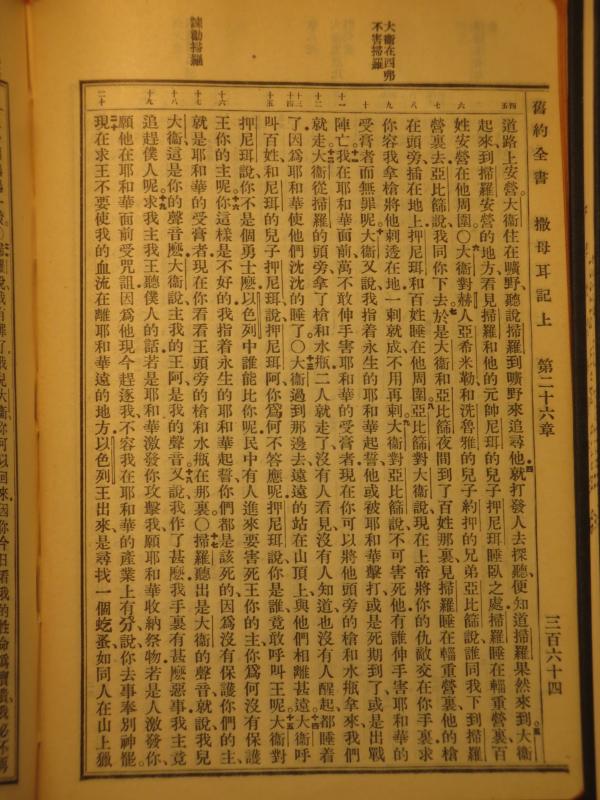 舊約全書 撒母耳記上 第二十六章 三百六十四
大衛在四弗
不害掃羅
諫勸掃羅
道路上安營大衛住在曠野聽說掃羅到曠野來追尋他就打發人去探聽便知道掃羅果然來到大衛
起來到掃羅安營的地方看見掃羅和他的元帥尼珥的兒子押尼珥睡臥之處掃羅睡在輜重營裏百
姓安營在他周圍〇大衛對赫人亞希米勒和洗魯雅的兒子約押的兄弟亞比篩說誰同我下到掃羅
營裏去亞比篩說我同你下去於是大衛和亞比篩夜間到了百姓那裏見掃羅睡在輜重營裏他的槍
在頭旁插在地上押尼珥和百姓睡在他周圍亞比篩對大衛說現在上帝將你的仇敵交在你手裏求
你容我拿槍將他刺透在地一刺就成不用再刺大衛對亞比篩說不可害死他有誰伸手害耶和華的
受膏者而無罪呢大衛又說我指着永生的耶和華起誓他或被耶和華擊打或是死期到了或是出戰
陣亡我在耶和華面前萬不敢伸手害耶和華的受膏者現在你可以將他頭旁的槍和水瓶拿來我們
就走大衛從掃羅的頭旁拿了槍和水瓶二人就走了沒有人看見沒有人知道也沒有人醒起都睡着
了因爲耶和華使他們沈沈的睡了〇大衛過到那邊去遠遠的站在山頂上與他們相離甚遠大衛呼
叫百姓和尼珥的兒子押尼珥說押尼珥阿你爲何不答應呢押尼珥說你是誰竟敢呼叫王呢大衛對
押尼珥說你不是個勇士麽以色列中誰能比你呢民中有人進來要害死王你的主你爲何沒有保護
王你的主呢你這樣是不好的我指着永生的耶和華起誓你們都是該死的因爲沒有保護你們的主
就是耶和華的受膏者現在你看看王頭旁的槍和水瓶在那裏〇掃羅聽出是大衛的聲音就說我兒
大衛這是你的聲音麽大衛說主我的王阿是我的聲音又說我作了甚麽我手裏有甚麽惡事我主竟
追趕僕人呢求我主我王聽僕人的話若是耶和華激發你攻擊我願耶和華收納祭物若是人激發你
願他在耶和華面前受咒詛因爲他現今趕逐我不容我在耶和華的產業上有分說你去事奉別神罷
現在求王不要使我的血流在離耶和華遠的地方以色列王出來是尋找一個虼蚤如同人在山上獵